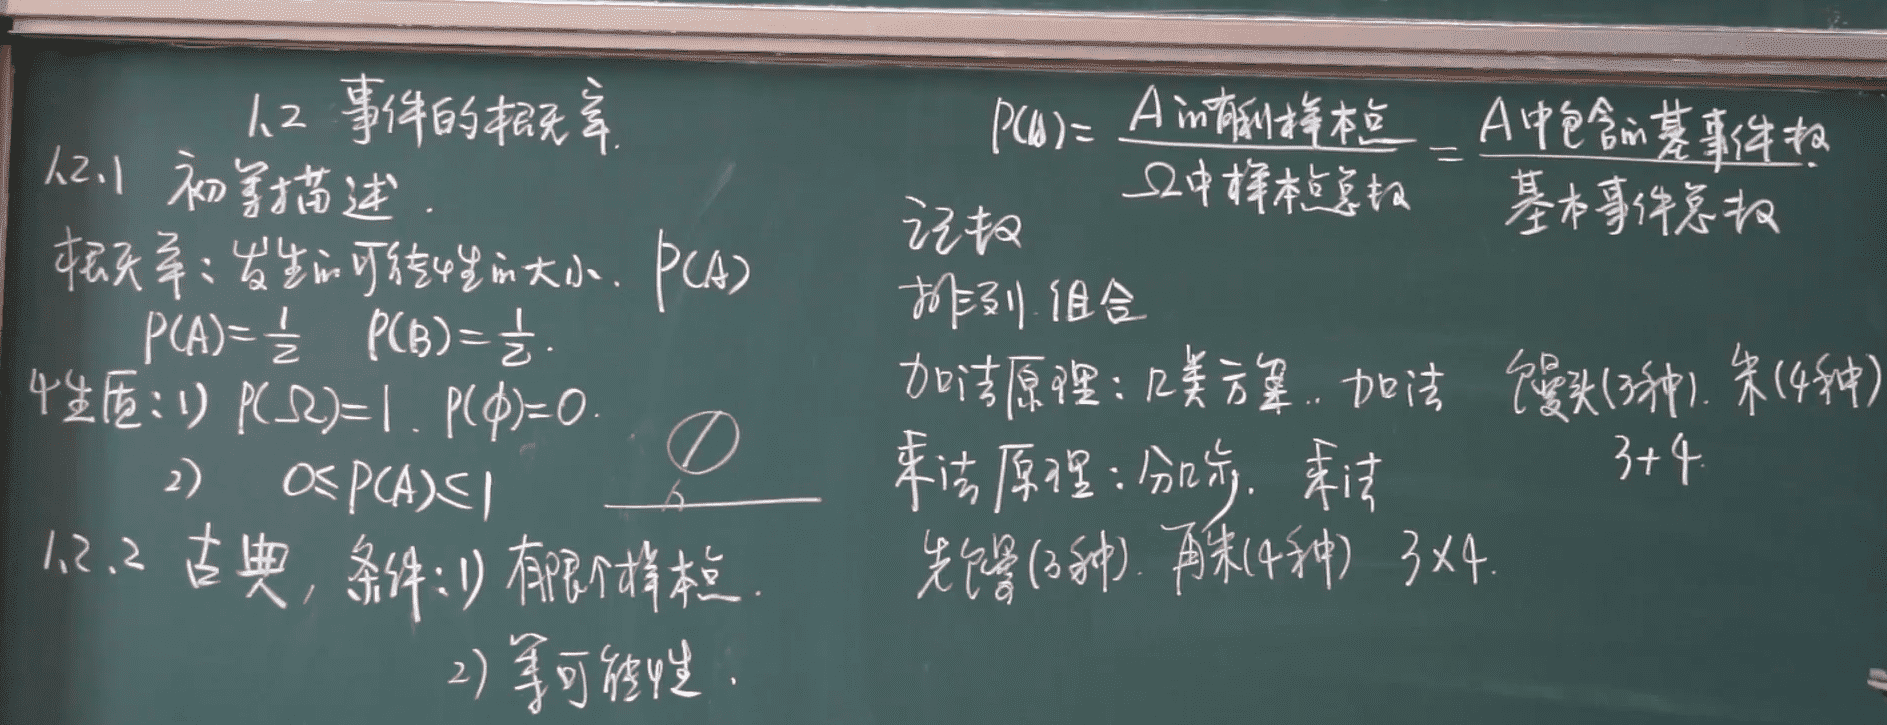 1.2 事件的概率.
1.2.1 初等描述.
概率:发生的可能性的大小. P(A)
P(A)=1/2 P(B)=1/2.
性质:1) P(Ω)=1. P(ϕ)=0.
2) 0≤P(A)≤1
1.2.2 古典, 条件:1) 有限个样本点.
2) 等可能性.
P(A)= A的有利样本点/Ω中样本点总数 = A中包含的基事件数/基本事件总数
记数
排列.组合
加法原理:几类方案.. 加法 馒头(3种). 米(4种)
3+4.
乘法原理:分几步. 乘法
先馒(3种). 再米(4种) 3×4.